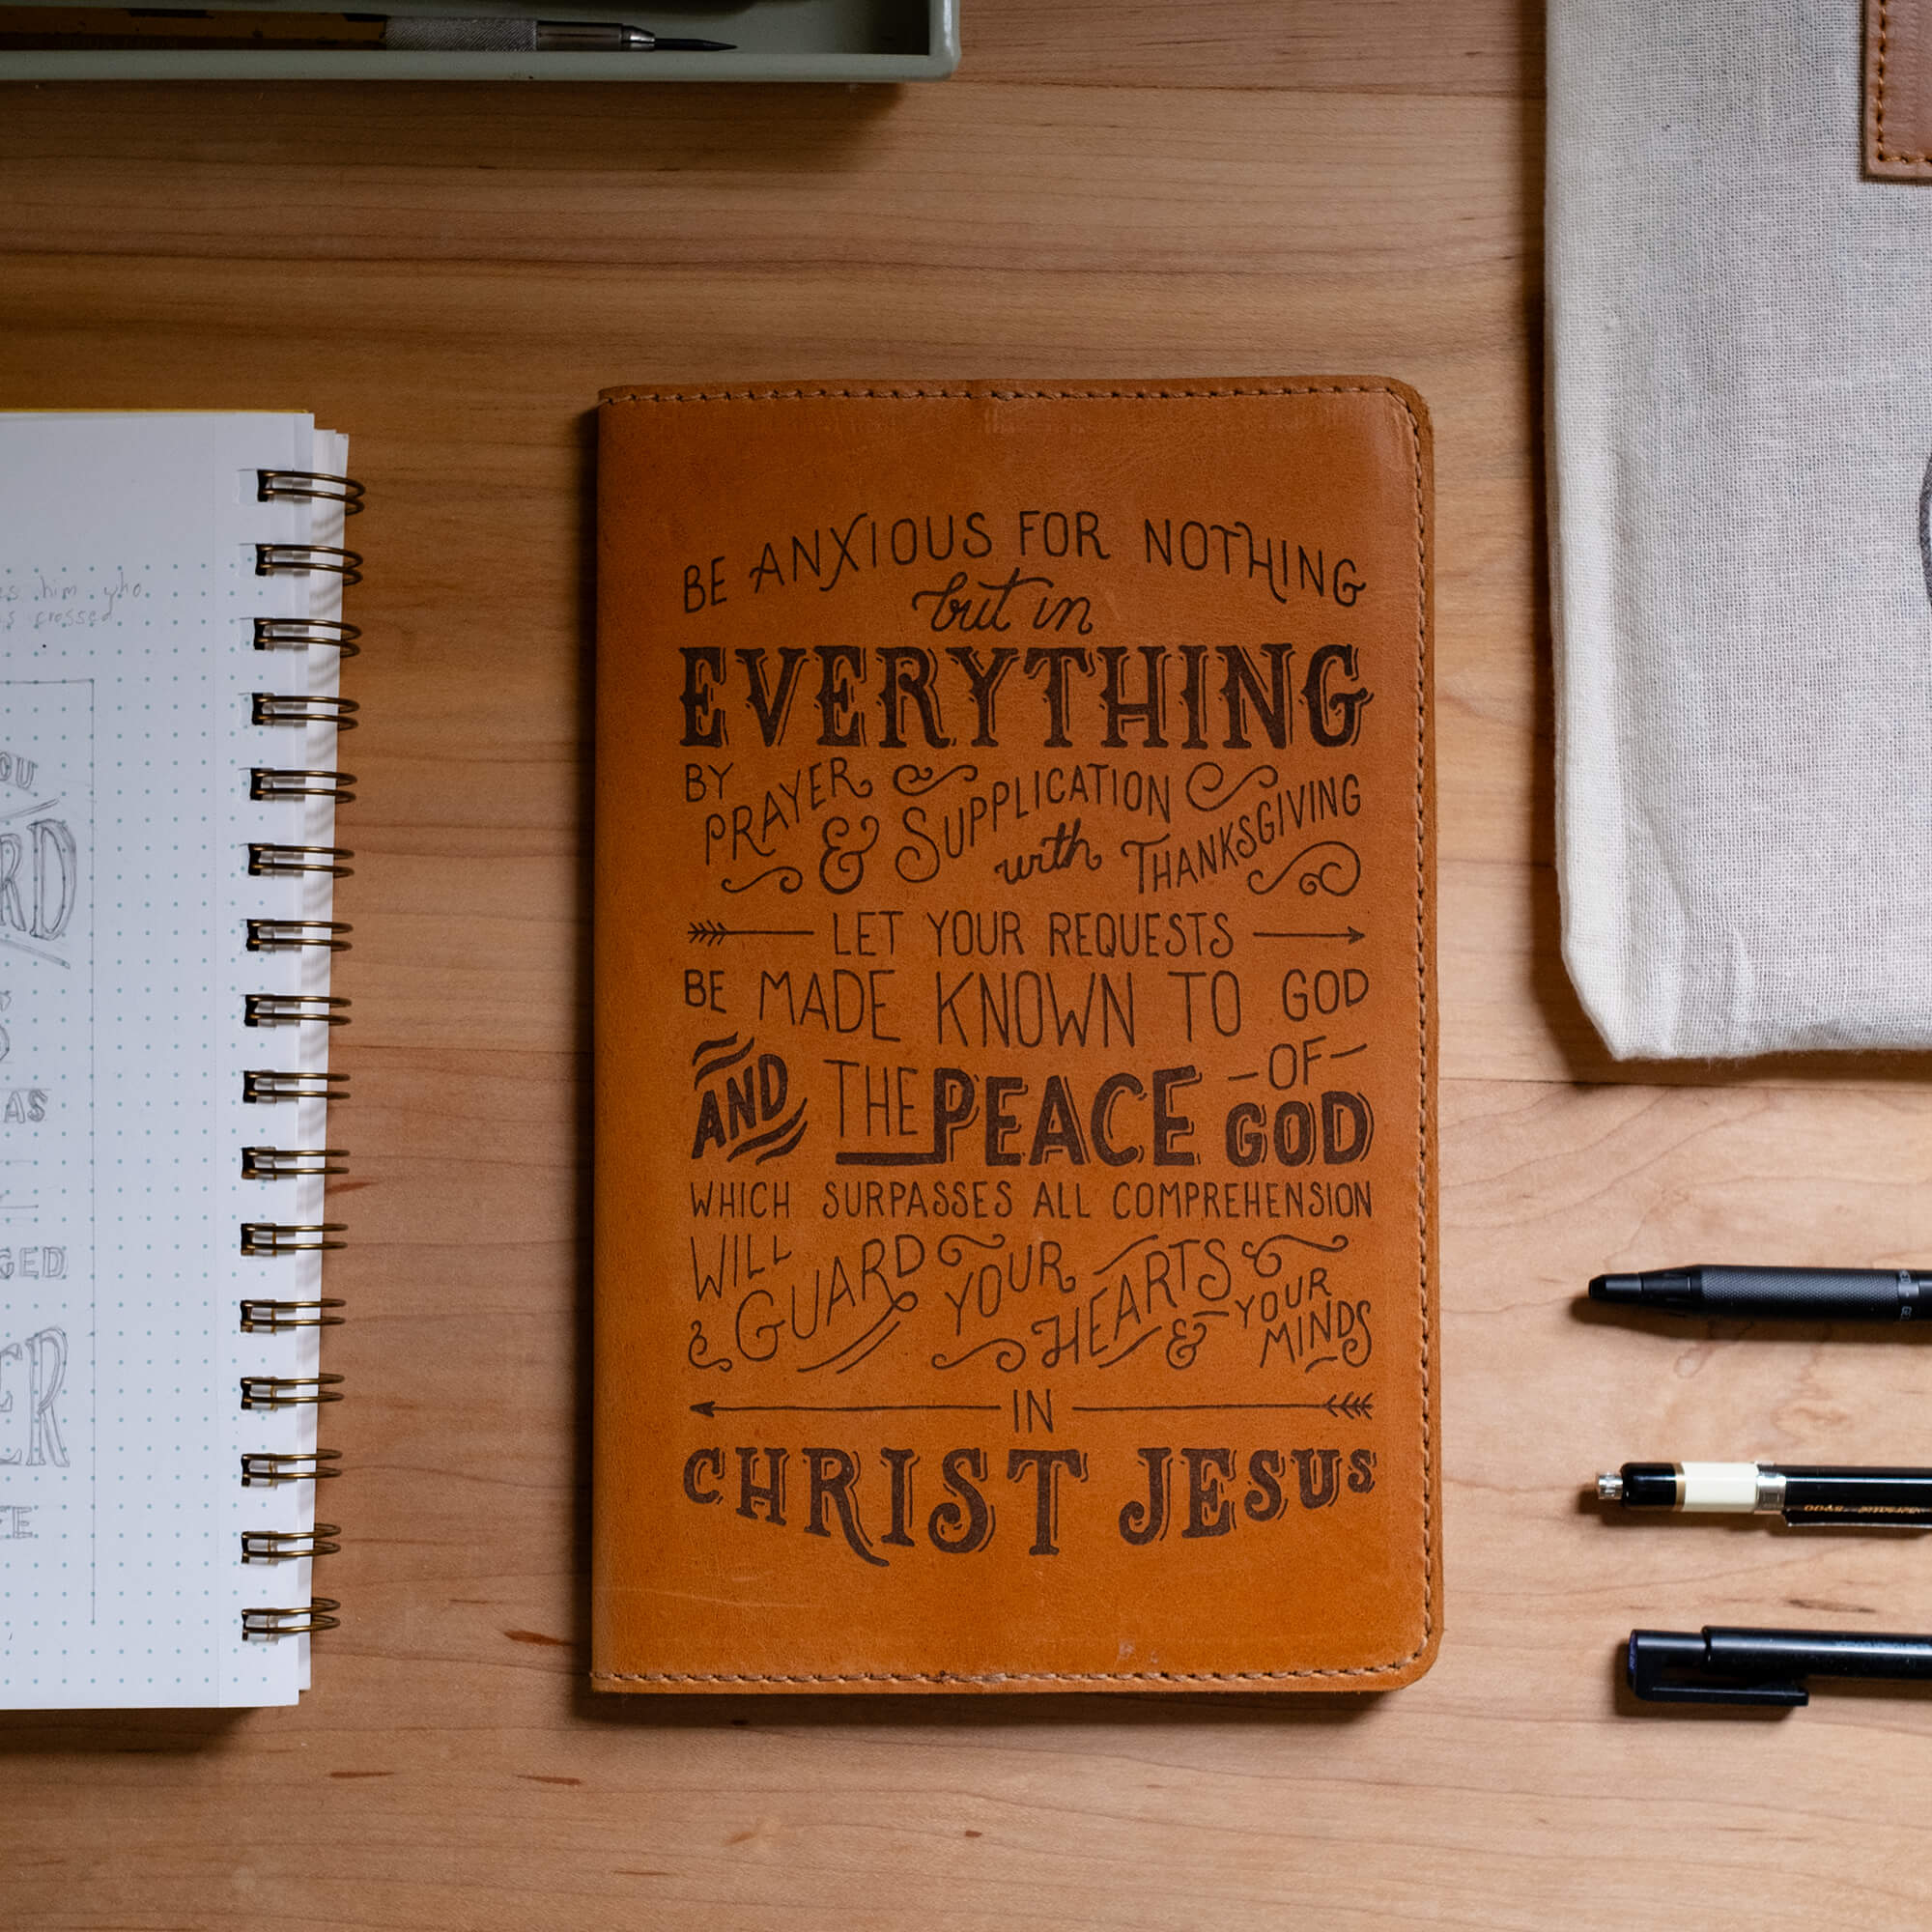 s him who
s crossed
OU
RD
AS
GED
ER
FE
BE ANXIOUS FOR NOTHING
but in
EVERYTHING
BY PRAYER & SUPPLICATION with THANKSGIVING
LET YOUR REQUESTS
BE MADE KNOWN TO GOD
AND THE PEACE OF GOD
WHICH SURPASSES ALL COMPREHENSION
WILL GUARD YOUR HEARTS & YOUR MINDS
IN
CHRIST JESUS